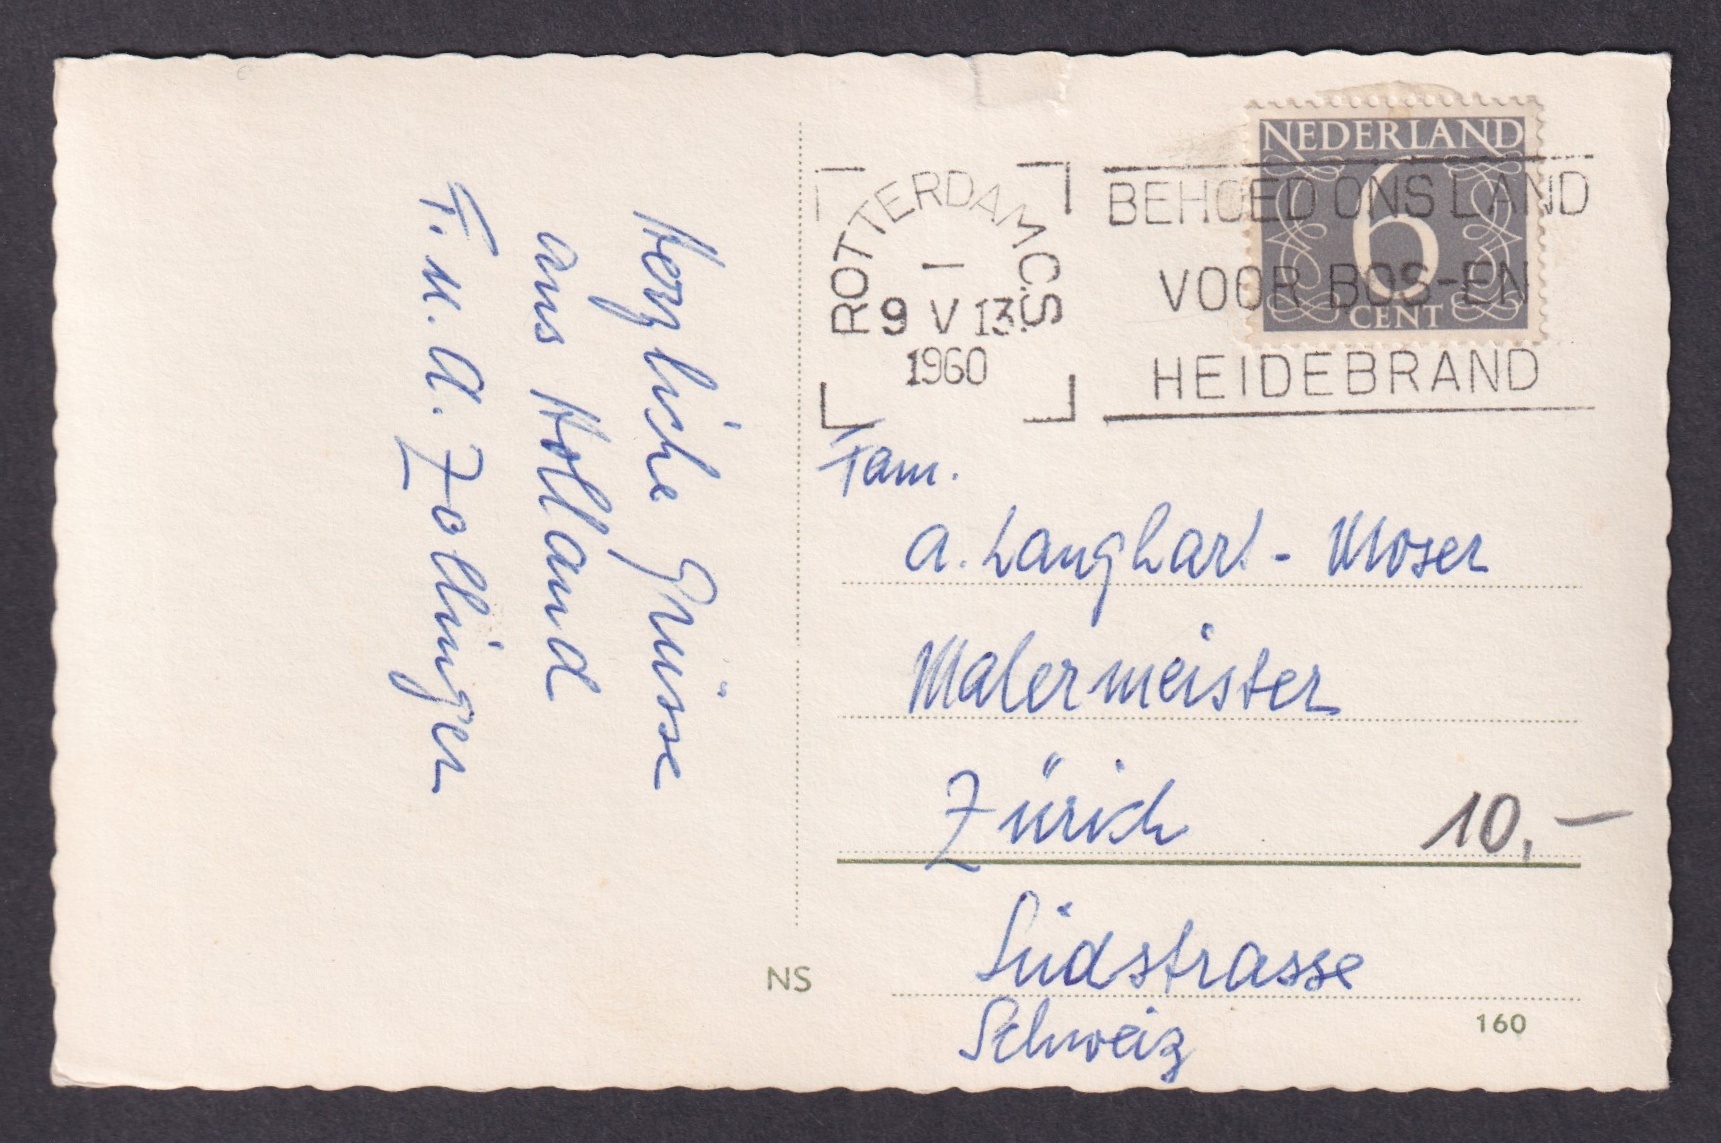 Herzliche Grüsse
aus Holland
F. u. A. Zollinger
NEDERLAND
6
CENT
ROTTERDAM C.S.
1
9 V 13.
1960
BEHOED ONS LAND
VOOR BOS-EN
HEIDEBRAND
Fam.
A. Langhart - Moser
Malermeister
Zürich
10,-
Südstrasse
Schweiz
NS
160